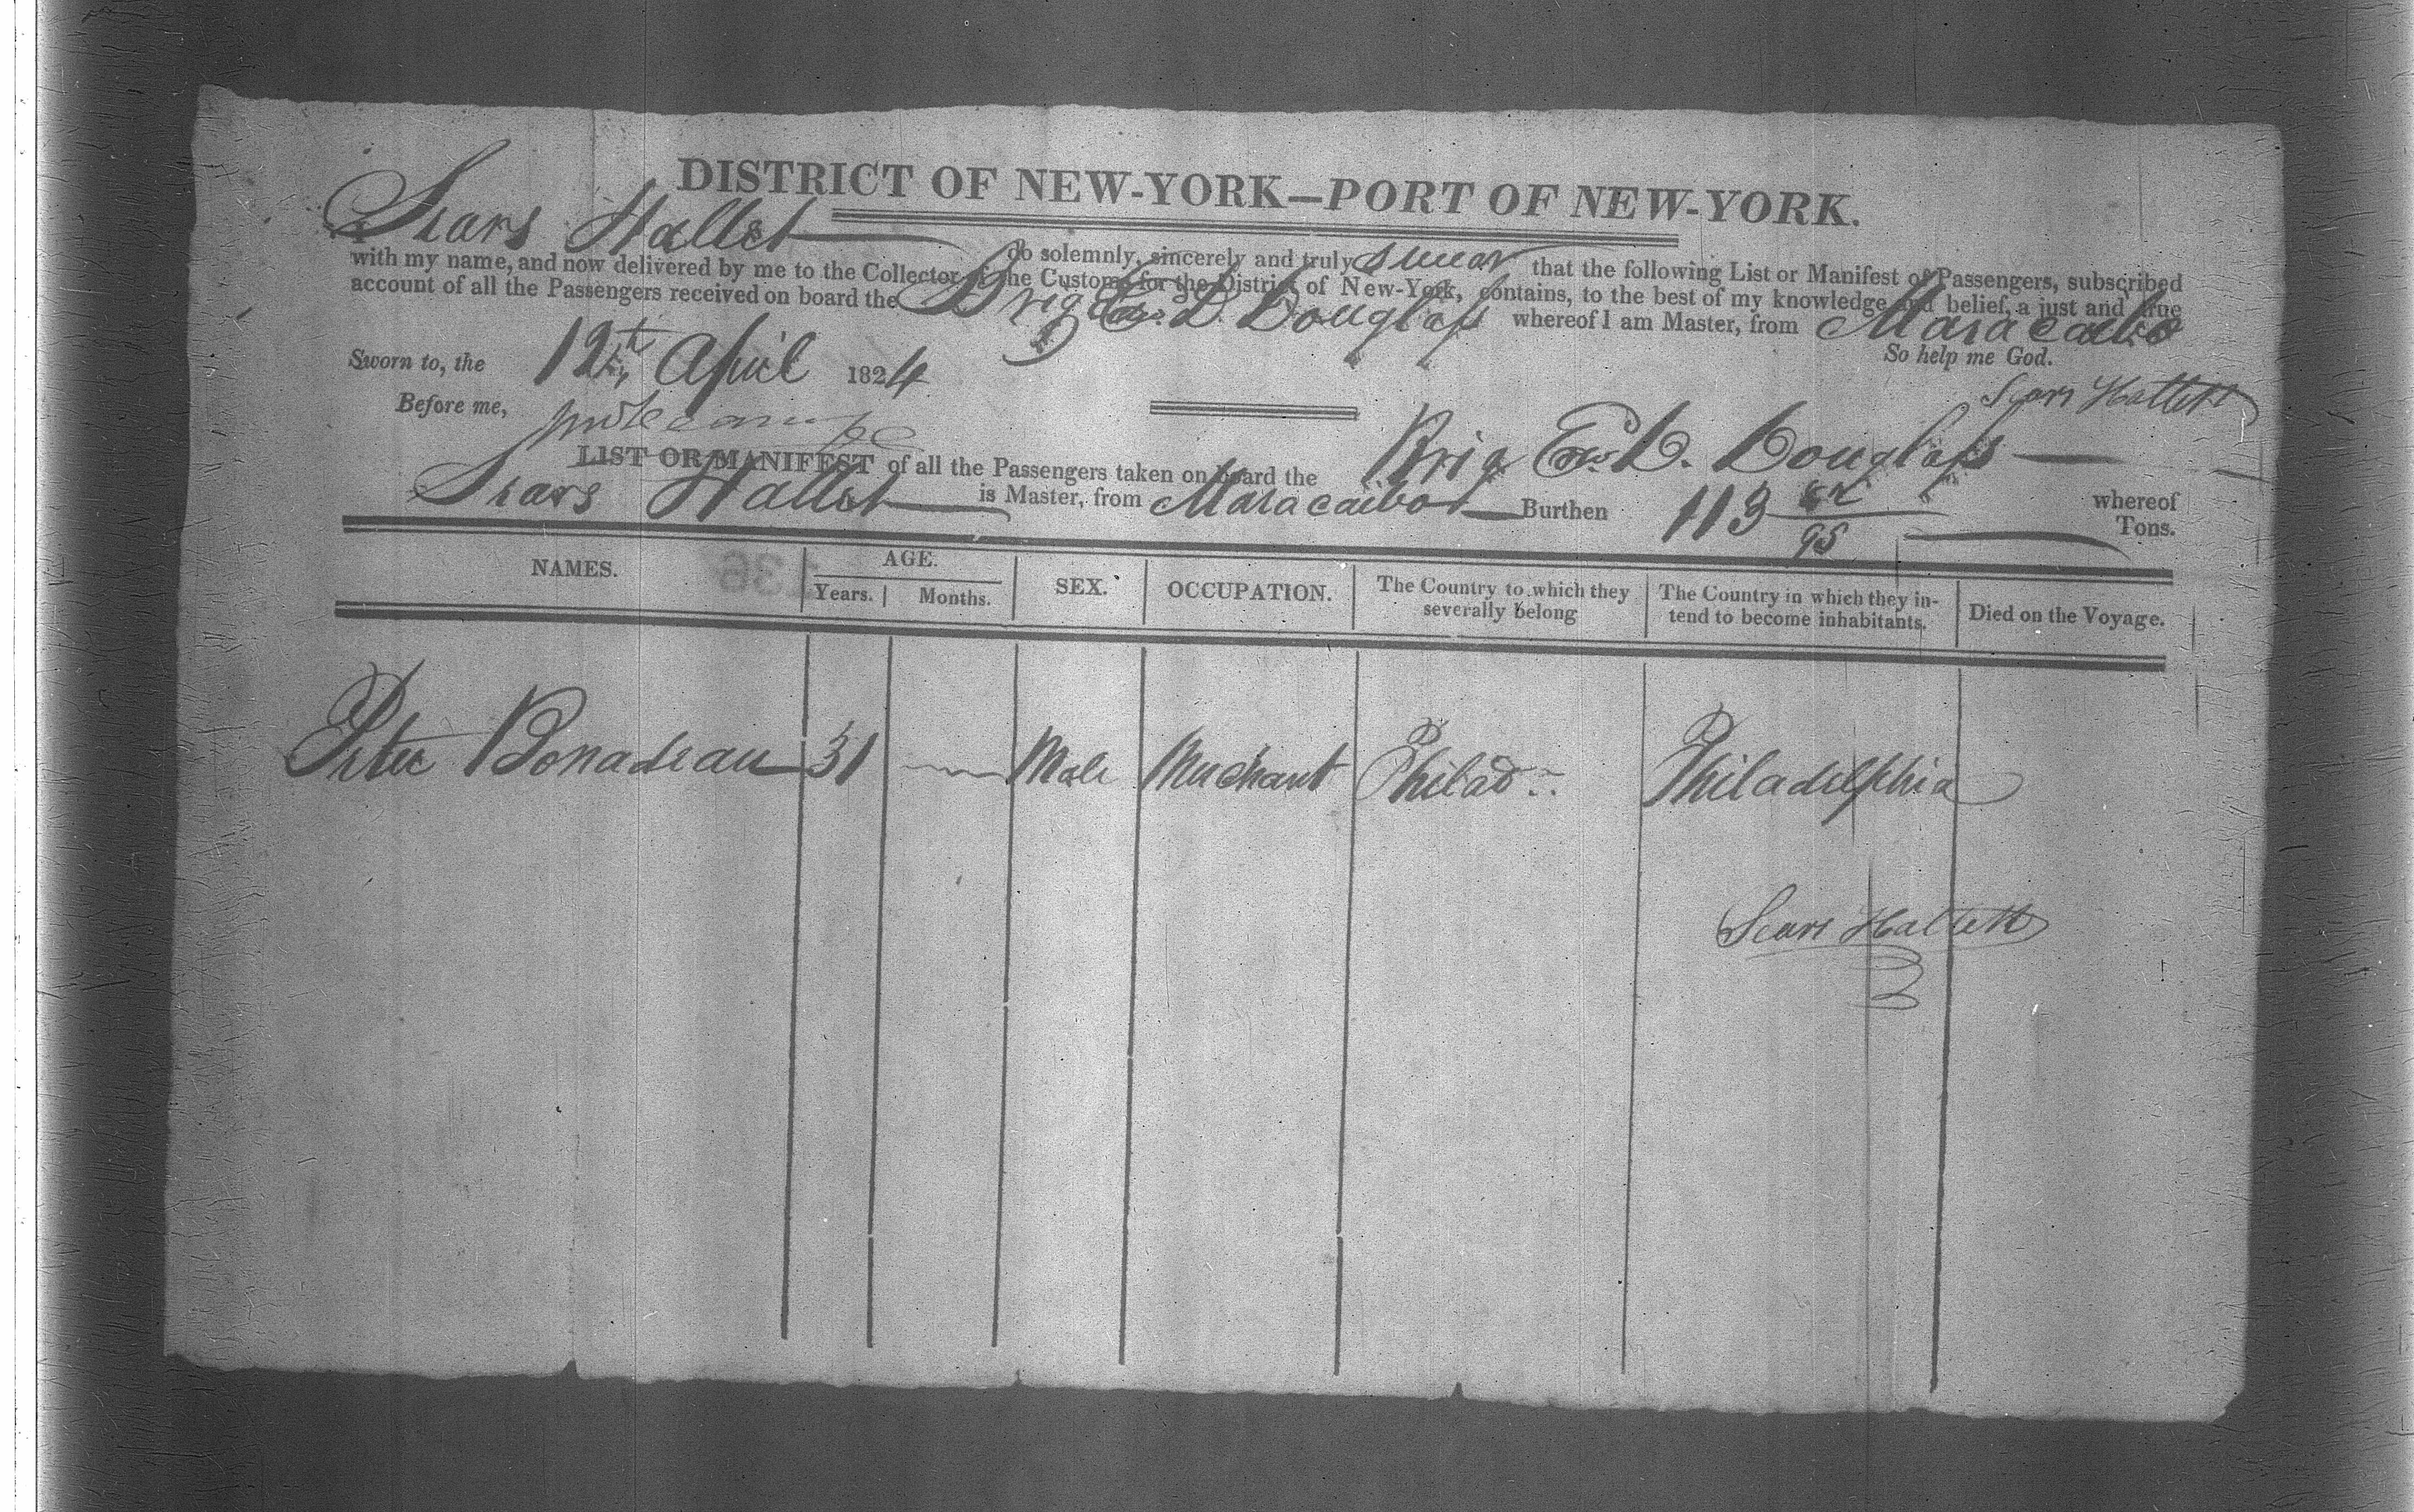 DISTRICT OF NEW-YORK—PORT OF NEW-YORK.
I Sears Hallet do solemnly, sincerely and truly swear that the following List or Manifest of Passengers, subscribed
with my name, and now delivered by me to the Collector of the Customs for the District of New-York, contains, to the best of my knowledge and belief, a just and true
account of all the Passengers received on board the Brig D. Douglass whereof I am Master, from Maracaibo
So help me God.
Sworn to, the 12th April 1824
Sears Hallett
Before me,
LIST OR MANIFEST of all the Passengers taken on board the Brig D. Douglass whereof
Sears Hallet is Master, from Maracaibo Burthen 113 /95 Tons.
136
NAMES. AGE. Years. Months. SEX. OCCUPATION. The Country to which they severally belong The Country in which they intend to become inhabitants. Died on the Voyage.
Peter Bonadeau 31 Male Merchant Philad Philadelphia
Sears Hallett